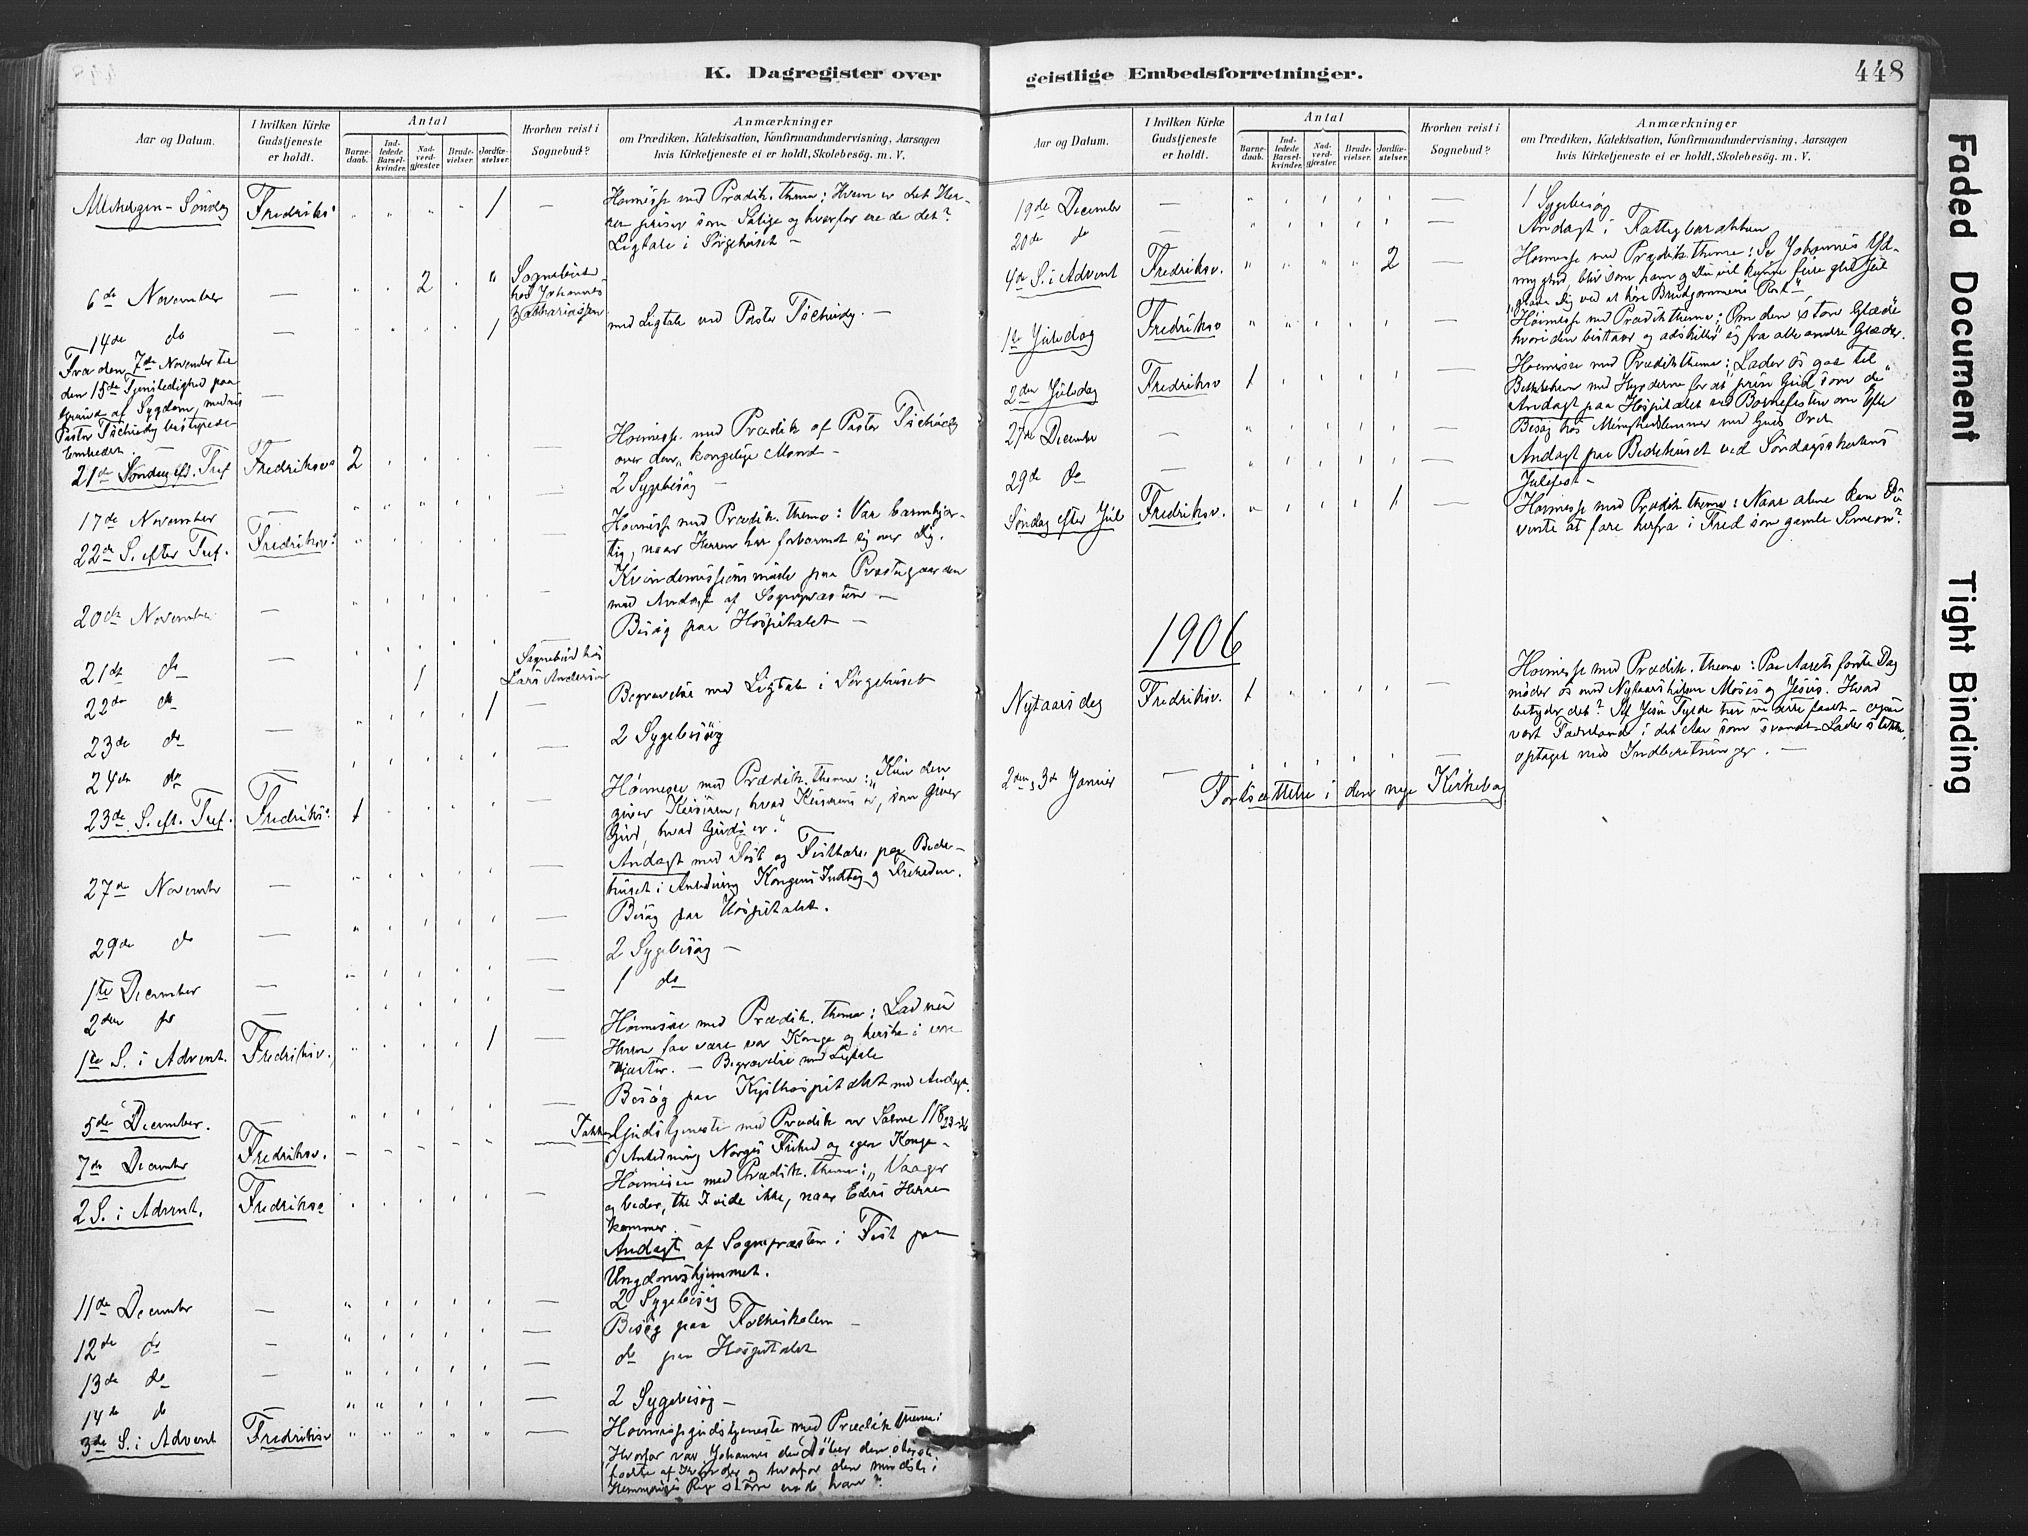 K. Dagregister over
Aar og Datum.
I hvilken Kirke Gudstjeneste er holdt.
Antal
Barnedaab.
Indledede Barselkvinder.
Nadverdgjæster
Brudevielser.
Jordfæstelser.
Hvorhen reist i Sognebud?
Anmærkninger
om Prædiken, Katekisation, Konfirmandundervisning, Aarsagen
hvis Kirketjeneste ei er holdt, Skolebesøg. m. V.
Allehelgen-Søndag Fredriksv. 1 — Høimesse med Prædik. thema: Hvem er det Her-
ren priser som Salige og hvorfor ere de det?
Ligtale i Sørgehuset —
6te November — 2 Sognebud hos Johannes Zakariassen
14de do — 1 med Ligtale ved Pastor Tschudy. —
Fra den 7de November til
den 15de Tjenstledighed paa
Grund af Sygdom, medens —
Pastor Tschudy bestyrede
Embedet. —
21de Søndag eft. Tref. Fredriksv. 2 — Høimesse med Prædik. af Pastor Tschudy
over den „kongelige Mand —
17de November — 2 Sygebesøg —
22de S. efter Tref. Fredriksv. — Høimesse med Prædik. thema: Vær barmhjer-
tig, naar Herren har forbarmet sig over dig.
20de November — Kvindemissionsmøde paa Prestegaarden
med Andagt af Sognepræsten —
21de do — Besøg paa Hospitalet —
22de do 1 Sognebud hos Lars Andersen
23de do 1 — Begravelse med Ligtale i Sørgehuset
24de do — 2 Sygebesøg
23de S. eft. Tref. Fredriksv. 1 — Høimesse med Prædik. thema: „Kun den
giver Keiseren, hvad Keiserens er, som giver
Gud, hvad Guds er."
27de November — Andagt med Fest og Festtale paa Bede-
huset i Anledning Kongens Indtog og Friheden.
29de do — Besøg paa Hospitalet.
1te December — 2 Sygebesøg —
2den do — 1 do
1te S. i Advent. Fredriksv. 1 Høimesse med Prædik. thema: Lad nu
Herren faa være vor Konge og herske i vore
Hjerter. — Begravelse med Ligtale
5de December. — Besøg paa Kysthospitalet med Andagt.
7de December Fredriksv. — Takke Gudstjeneste med Prædik. over Salme 118
i Anledning Norges Frihed og egen Konge —
2 S. i Advent. Fredriksv. — Høimesse med Prædik. thema: „Vaager
og beder, thi I vide ikke, naar Eders Herre
kommer —
Andagt af Sognepræsten i Fest paa
Ungdomshjemmet.
11de December — 2 Sygebesøg
12de do — Besøg paa Folkeskolen —
13de do — do paa Hospitalet
14de do — 2 Sygebesøg —
3de S. i Advent Fredriksv — Høimessegudstjeneste med Prædik. thema:
„Hvorfor var Johannes den Døber den største
fødte af Kvinder og hvorfor den mindste i
Himmeriges Rige større end han?"
geistlige Embedsforretninger.
448
Aar og Datum.
I hvilken Kirke Gudstjeneste er holdt.
Antal
Barnedaab.
Indledede Barselkvinder.
Nadverdgjæster.
Brudevielser.
Jordfæstelser.
Hvorhen reist i Sognebud?
Anmærkninger
om Prædiken, Katekisation, Konfirmandundervisning, Aarsagen
hvis Kirketjeneste ei er holdt, Skolebesøg. m. V.
19de December — — 1 Sygebesøg
20de do — — Andagt i Fattigbarakken
4de S. i Advent Fredriksv. 2 — Høimesse med Prædik. thema: Se Johannes Yd-
myghed, bliv som ham og Du vil kunne feire glad Jul
„glæde dig ved at høre Brudgommens Røst"
1te Juledag Fredriksv — Høimesse med Prædik. thema: Om den store Glæde
hvori den bestaar og adskiller sig fra alle andre Glæder.
2den Juledag Fredriksv 1 — Høimesse med Prædik. thema: Lader os gaa til
Bethlehem med Hyrderne for at prise Gud som de"
27de December — Andagt paa Hospitalet ved Børnefesten om Efter
Besøg hos Menighedslemmer med Guds Ord
29de do — Andagt paa Bedehuset ved Søndagsskolens
Julefest —
Søndag efter Jul Fredriksv. 1 — Høimesse med Prædik. thema: Naar alene kan Du
vente at fare herfra i Fred som gamle Simeon?
1906
Nytaarsdag Fredriksv. 1 — Høimesse med Prædik. thema: Paa Aarets første Dag
møder os med Nytaarshilsen Moses og Jesus. Hvad
betyder det? Af Jesu Fylde har vi alle faaet — ogsaa
vort Fædreland i det Aar som svandt —
optaget med Indberetninger. —
2den, 3de Januar — Fortsættelse i den nye Kirkebog
Faded Document
Tight Binding